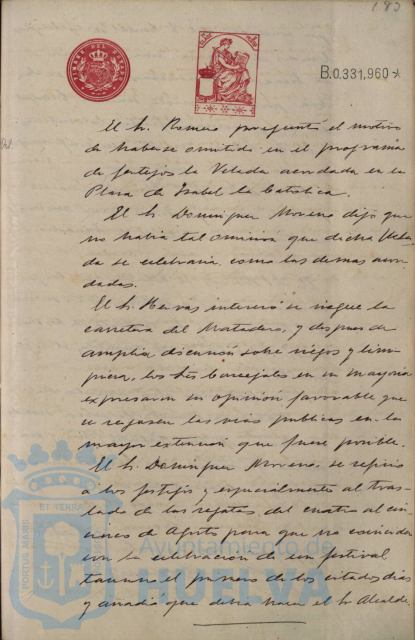 182
TIMBRE DEL ESTADO
B.0.331,960
El Sr. Romero preguntó el motivo
de haberse omitido en el programa
de festejos la Velada acordada en la
Plaza de Isabel la Católica.
El Sr. Dominguez Moreno dijo que
no había tal omisión que dicha Vela-
da se celebraria como las demas acor-
dadas.
El Sr. Hervas interesó se riegue la
carretera del Matadero, y despues de
amplia discusión sobre riegos y lim-
pieza, los Sres Concejales en su mayoria
expresaron su opinión favorable que
se regasen las vias publicas en la
mayor extensión que fuere posible.
El Sr. Dominguez Moreno se refirió
a los festejos y especialmente al tras-
lado de las regatas del cuatro al cin-
co de Agosto para que no coincida
con la celebración de un festival
taurino el primero de los citados dias
y añadió que debia hacer el Sr. Alcalde
PORTUS MARIS ET TERRAE
Ayuntamiento de
HUELVA